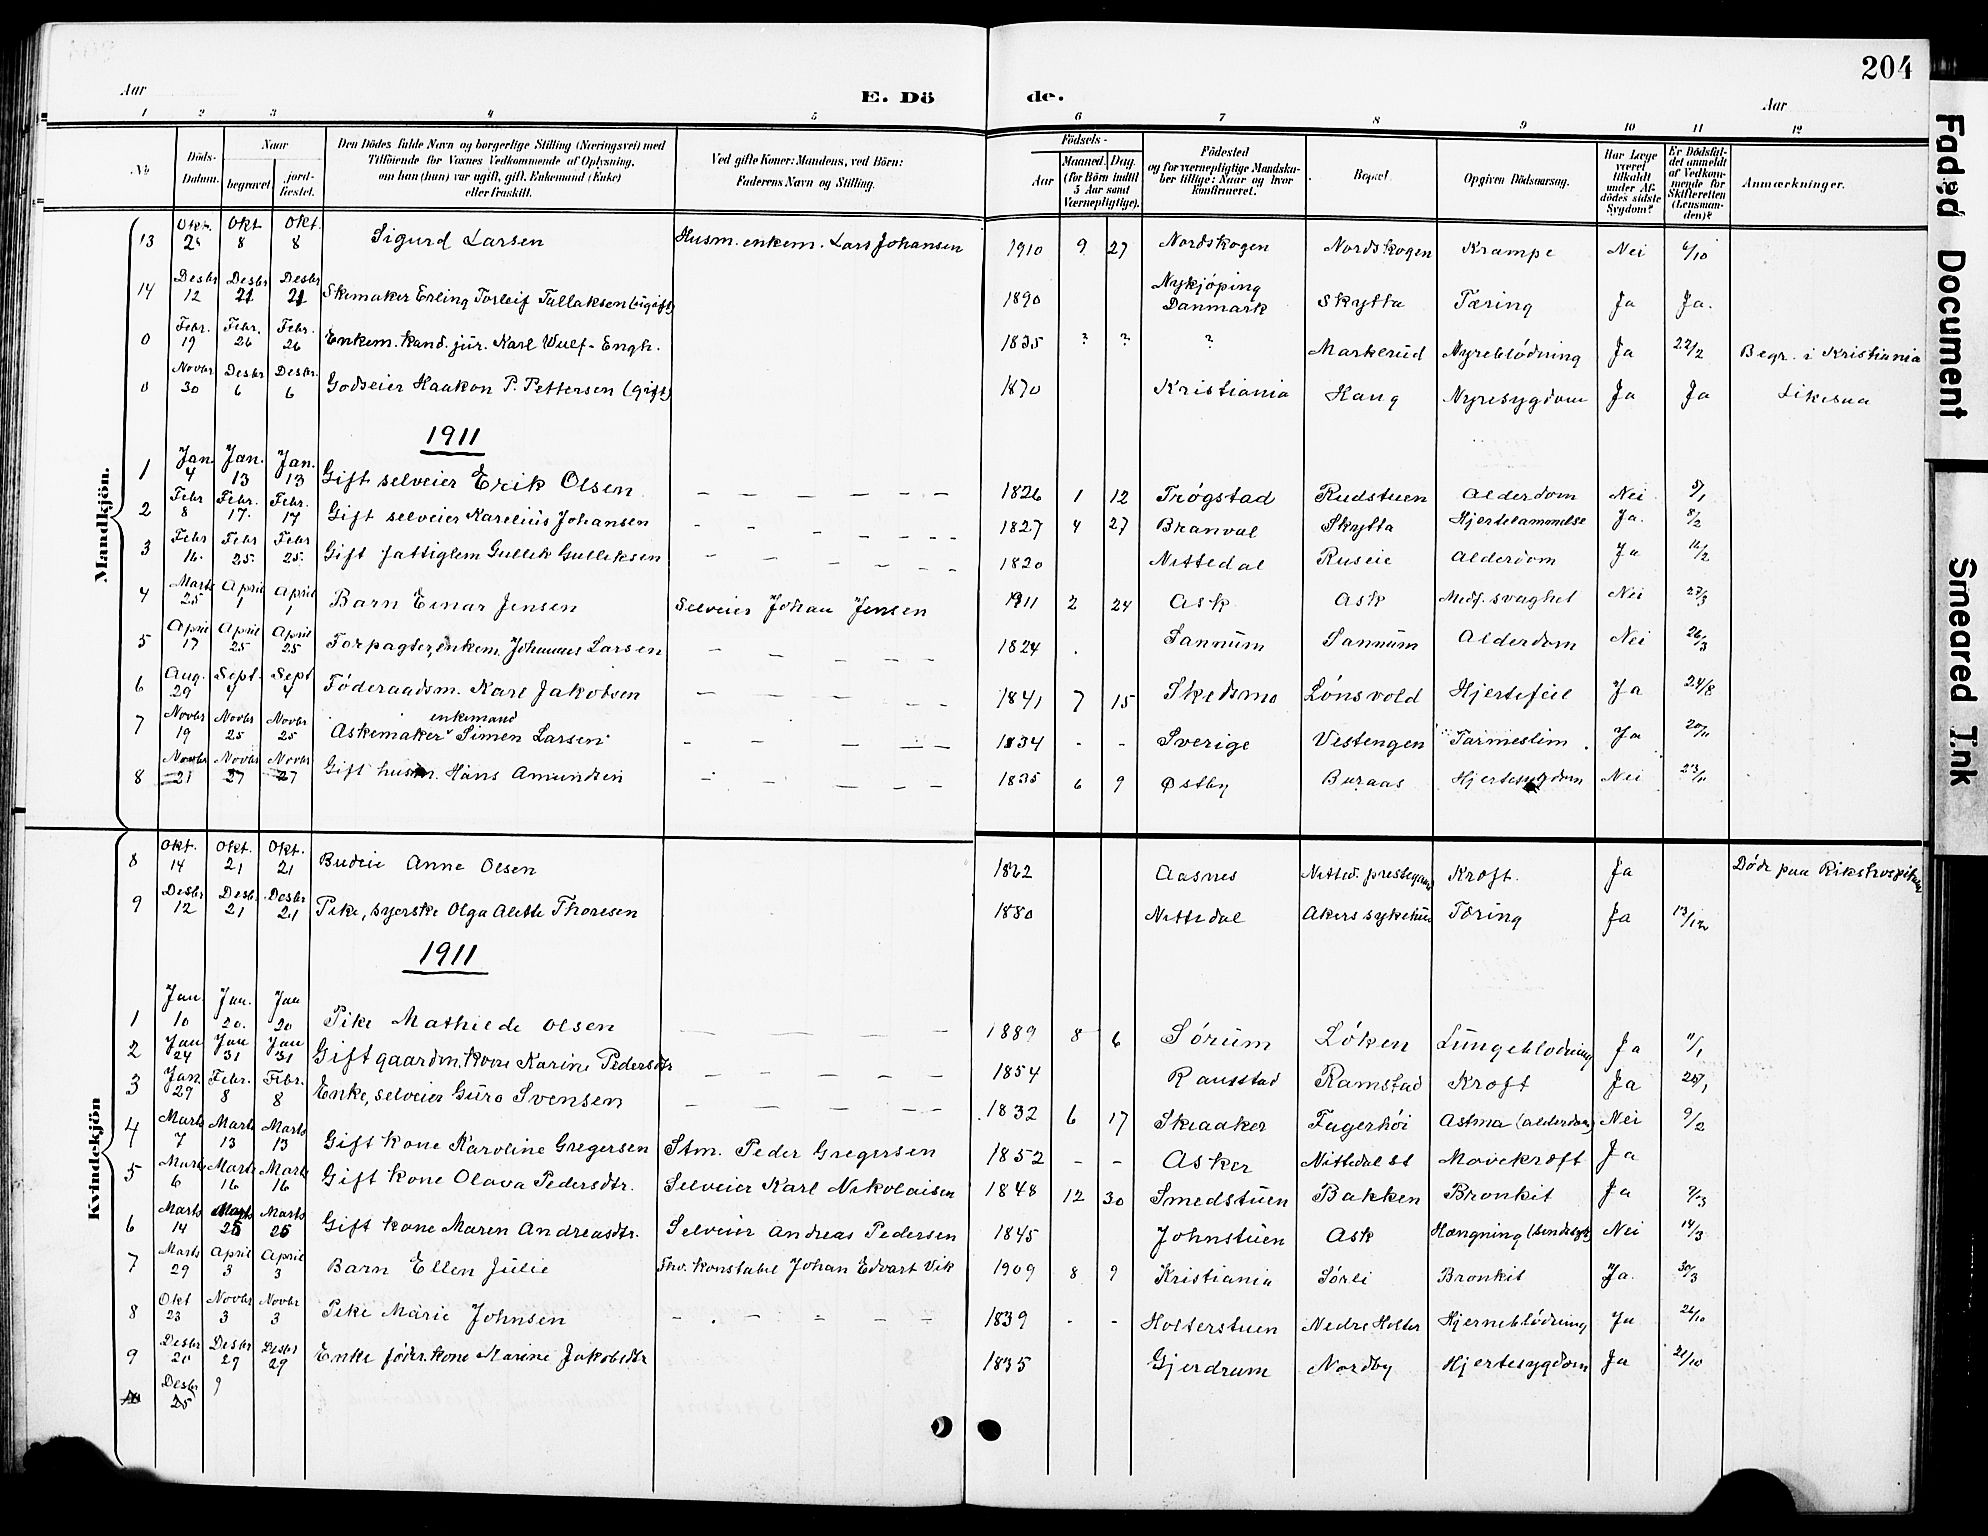 204
Aar
E. Dö de.
Aar
1 2 3 4 5 6 7 8 9 10 11 12
No
Döds-Datum.
Naar
begravet.
jord-fæstet.
Den Dödes fulde Navn og borgerlige Stilling (Næringsvei) med
Tilföiende for Voxnes Vedkommende af Oplysning,
om han (hun) var ugift, gift, Enkemand (Enke)
eller fraskilt.
Ved gifte Koner: Mandens, ved Börn:
Faderens Navn og Stilling.
Födsels-
Aar
Maaned. Dag.
(for Börn indtil
5 Aar samt
Værnepligtige).
Födested
og for værnepligtige Mandska-
ber tillige: Naar og hvor
konfirmeret.
Bopæl.
Opgiven Dödsaarsag.
Har Læge
været
tilkaldt
under Af-
dödes sidste
Sygdom?
Er Dödsfal-
det anmeldt
af Vedkom-
mende for
Skifteretten
(Lensman-
den)?
Anmærkninger.
Mandkjön.
13 Okt. Okt. 8 Okt. 8 Sigurd Larsen Husm. enkem. Lars Johansen 1910 9 27 Nordskogen Nordskogen Krampe Nei 6/10
14 Desbr 12 Desbr 21 Desbr 21 Skomaker Erling Torleif Tallaksen (ugift) 1890 Nykjöping Danmark Skytta Tæring Ja Ja.
0 Febr. 19 Febr. 26 Febr. 26 Enkem. kand. jur. Karl Wulf-Engh. 1835 ? ? ? Markerud Nyreblödning Ja 22/2 Begr. i Kristiania
0 Novbr 30 Desbr 6 Desbr. 6 Godseier Haakon P. Pettersen (gift) 1870 Kristiania Haug Nyresygdom Ja Ja Likesaa
1911
1 Jan. 4 Jan. 13 Jan. 13 Gift selveier Erik Olsen – – – – – – 1826 1 12 Trögstad Rudstuen Alderdom Nei 5/1
2 Febr 8 Febr. 17. Febr. 17 Gift selveier Karelius Johansen – – – – – – 1827 4 27 Branval Skytta Hjertelammelse Ja. 8/2
3 Febr 16. Febr 25. Febr 25. Gift fattiglem Gullik Gulliksen – – – – – – 1820 Nittedal Ruseie Alderdom Ja 16/2
4 Marts 25 April 1 April 1 Barn Einar Jensen Selveier Johan Jensen 1911 2 24 Ask Ask Medf. svaghet Nei 27/3
5 April 17 April 25 April 25 Forpagter, enkem. Johannes Larsen – – – – – 1824 . Sannum Sannum Alderdom Nei 26/3
6 Aug. 29 Sept. 4 Sept 4 Föderaadsm. Karl Jakobsen – – – – – 1841 7 15 Skedsmo Lönsvold Hjertefeil Ja 24/8
7 Novbr 19 Novbr 25 Novbr 25 Askemaker enkemand Simen Larsen – – – – – 1834 - - Sverige Vestengen Tarmeslim. Ja 20/11
8 Novbr 21 Novbr 27 Novbr 27 Gift husm. Hans Amundsen – – – – – 1835 6 9 Østby Buraas Hjertesygdom Nei 23/11
Kvindekjön
8 Okt. 14 Okt. 21 Okt. 21 Budeie Anne Olsen 1862 Aasnes Nitted. prestegaard Kræft. Ja Döde paa Rikshospitalet
9 Desbr 12 Desbr 21 Desbr 21 Pike, syerske Olga Alette Thoresen 1880 Nittedal Akers sykehus Tæring Ja 13/12
1911
1 Jan 10 Jan. 20. Jan 20 Pike Mathilde Olsen – – – – 1889 8 6 Sörum Löken Lungeblödning Ja 11/1
2 Jan 24 Jan 31 Jan 31 Gift gaardm. kone Karine Pedersdtr – – – – – 1854 Ramstad Ramstad Kræft Ja
3 Jan. 29 Febr. 8 Febr. 8 Enke, selveier Guro Svensen – – – – – 1832 6 17 Skiaaker Fagerhöi Astma (alderdom) Nei 9/2
4 Marts 7 Marts 13 Marts 13 Gift kone Karoline Gregersen Stm. Peder Gregersen 1852 - - Asker Nittedal st Mavekræft Ja
5 Marts 6 Marts 16 Marts 16 Gift kone Olava Pedersdtr. Selveier Karl Nikolaisen 1848 12 30 Smedstuen Bakken Bronkit Ja 9/3
6 Marts 14 Marts 25 Marts 25 Gift kone Maren Andreasdtr. Selveier Andreas Pedersen 1845 Johnstuen Ask Hængning (sindssyk) Nei 14/3
7 Marts 29 April 3 April 3 Barn Ellen Julie Fhv. konstabel Johan Edvart Vik 1909 8 9 Kristiania Sörli Bronkit Ja. 30/3
8 Okt 23 Novbr 3 Novbr 3 Pike Marie Johnsen – . – – – – 1839 - - Holterstuen Nedre Holter Hjerneblödning Ja 26/10
9 Desbr 20 Desbr 29 Desbr 29 Enke föder. kone Marine Jakobsdtr 1835 Gjerdrum Nordby Hjertesygdom Ja 21/10
Desbr 25
Faded Document
Smeared Ink